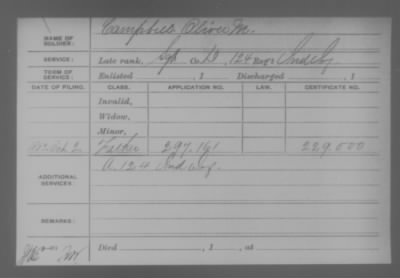 NAME OF SOLDIER: Campbell Oliver M.
SERVICE: Late rank, Sgt Co. D, 124 Reg't Ind Inf
TERM OF SERVICE: Enlisted , 1 Discharged , 1
DATE OF FILING. CLASS. APPLICATION NO. LAW. CERTIFICATE NO.
Invalid,
Widow,
Minor,
Oct. 2 Father 297.161 229.000
ADDITIONAL SERVICES: A. 124 Ind
REMARKS:
Died , 1 , at